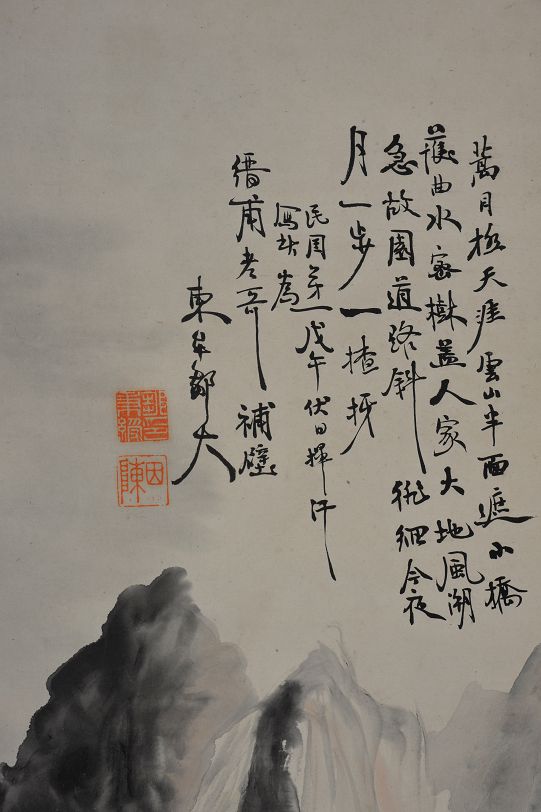 蒿目極天涯雲山半面遮小橋
護曲水密樹蓋人家大地風潮
急故園道路斜徘徊今夜
月一步一楂枒
民国第一戊午伏日揮汗
寫此為
縉甫老哥補壁
東牟鄒大